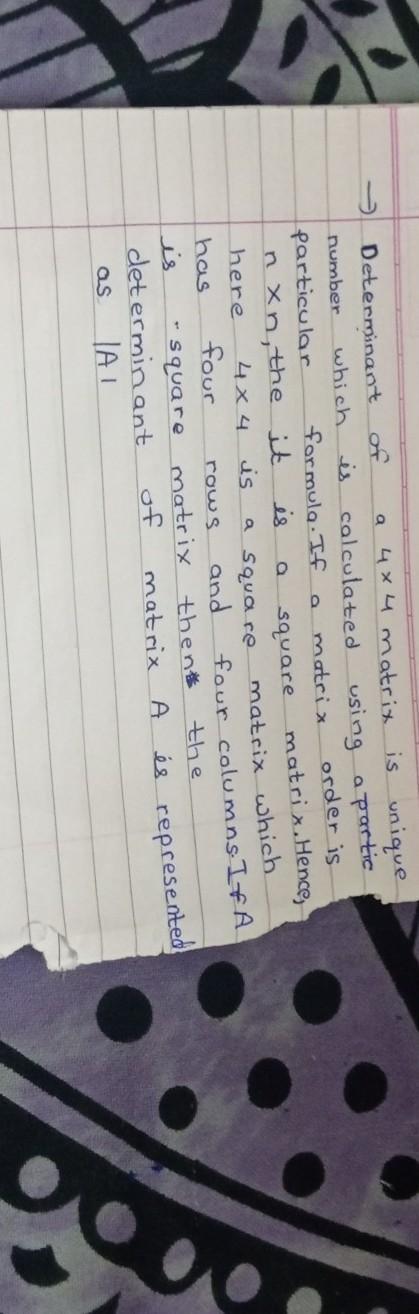 → Determinant of a 4×4 matrix is unique
number which is calculated using a partic
particular formula. If a matrix order is
n×n, the it is a square matrix. Hence,
here 4×4 is a square matrix which
has four rows and four columns. If A
is square matrix then the
determinant of matrix A is represented
as |A|